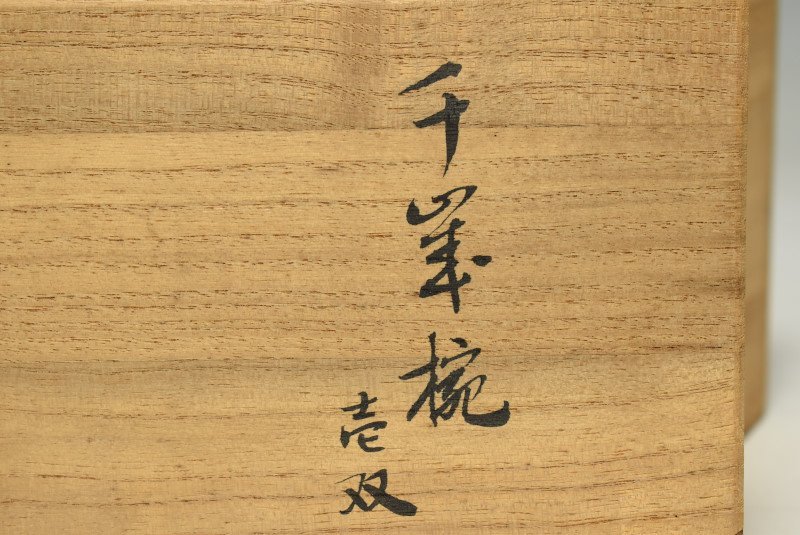 千歳椀
壱双